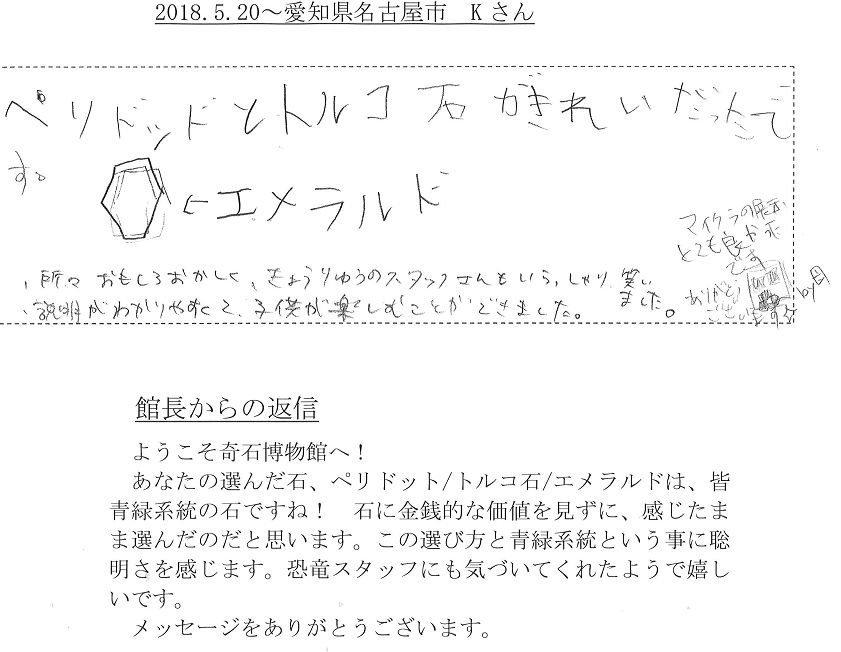 2018.5.20～愛知県名古屋市　Kさん
ペリドッドとトルコ石がきれいだったで
す。
←エメラルド
マイクラの展示
とても良か
です
、所々おもしろおかしく、きょうりゅうのスタッフさんもいらっしゃり、笑い
ました。
、説明がわかりやすくて、子供が楽しむことができました。
ありがとう
ございます
by母
館長からの返信
ようこそ奇石博物館へ！
あなたの選んだ石、ペリドット/トルコ石/エメラルドは、皆
青緑系統の石ですね！　石に金銭的な価値を見ずに、感じたま
ま選んだのだと思います。この選び方と青緑系統という事に聡
明さを感じます。恐竜スタッフにも気づいてくれたようで嬉し
いです。
メッセージをありがとうございます。